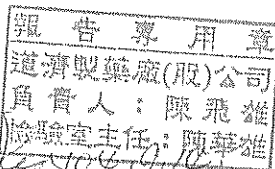 報告專用章
進濟製藥廠(股)公司
負責人：陳飛雄
檢驗室主任：陳華雄